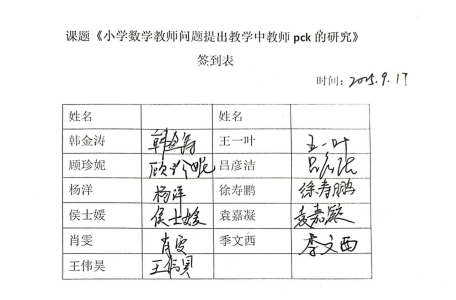 课题《小学数学教师问题提出教学中教师pck的研究》
签到表
时间：2025.9.17
姓名 姓名
韩金涛 韩金涛 王一叶 王一叶
顾珍妮 顾珍妮 吕彦洁 吕彦洁
杨洋 杨洋 徐寿鹏 徐寿鹏
侯士媛 侯士媛 袁嘉凝 袁嘉凝
肖雯 肖雯 季文西 季文西
王伟昊 王伟昊